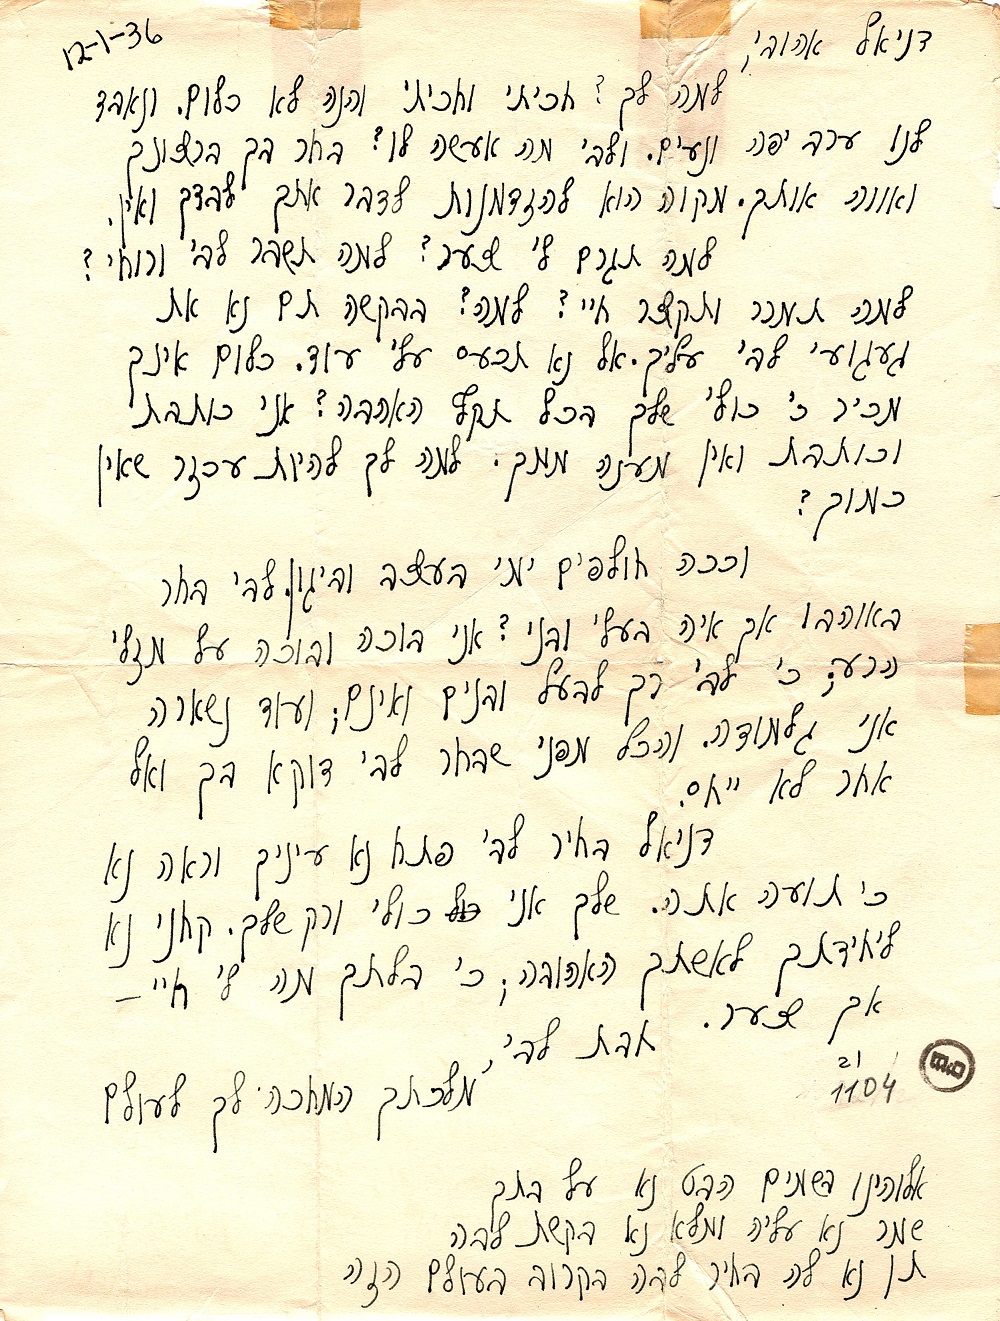 12-1-36
דניאל אהובי,
למה לך? חכיתי וחכיתי והנה לא כלום. ונאבד
לנו ערב יפה ונעים. ולבי מה אעשה לו? בחר בך ברצונך
ואוה אותך. מקוה הוא להזדמנות לדבר אתך לבדך ואין.
למה תגרם לי צער? למה תשבר לבי ורוחי?
למה תמרר ותקצר חיי? למה? בבקשה תם נא את
געגועי לבי עליך. אל נא תכעס עלי עוד. כלום אינך
מכיר כי כולי שלך בכל תקף האהבה? אני כותבת
וכותבת ואין מענה ממך. למה לך להיות עכזר שאין
כמוך?
וככה חולפים ימי בעצב וביגון. לבי בחר
באוהבו אך איה בעלי ובני? אני בוכה ובוכה על מזלי
הרע; כי לבי רך לבעל ובנים ואינם; ועוד נשארה
אני גלמודה. והכל מפני שבחר לבי דוקא בך ואל
אחר לא ייחס.
דניאל בחיר לבי פתח נא עיניך וראה נא
כי תועה אתה. שלך אני כולי ורק שלך. קחני נא
ליחידתך לאשתך האהובה; כי בלתך מה לי חיי –
אך צער.
חבת לבי,
מלכתך המחכה לך לעולם
21
1104
אלוהינו בשמים הבט נא על בתך
שמר נא עליה ומלא נא בקשת לבה
תן נא לה בחיר לבה בקרוב בעולם הזה